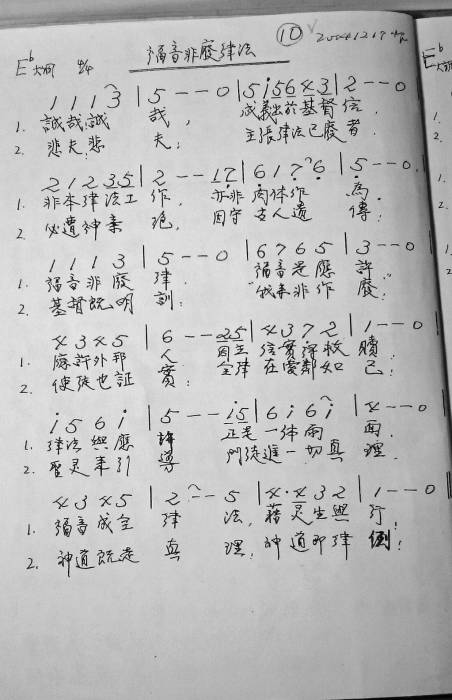 ⑩ 2004 12 19
E♭大調 4/4 福音非廢律法
1 1 1 3 | 5 - - 0 | 5 i 5 6 4 3 | 2 - - 0
1. 誠哉誠哉, 成義出於基督信.
2. 悲夫悲夫; 主張律法已廢者.
2 1 2 3 5 | 2 - - 1 7 | 6 1 7 6 | 5 - - 0
1. 非本律法工作, 亦非肉体作為.
2. 必遭神棄絕, 因守古人遺傳;
1 1 1 3 | 5 - - 0 | 6 7 6 5 | 3 - - 0
1. 福音非廢律 福音是應許
2. 基督既明訓: "我來非作廢"
4 3 4 5 | 6 - - 3 5 | 4 3 7 2 | 1 - - 0
1. 應許外邦人 因主信實得救贖.
2. 使徒也証實: 全律在愛鄰如己.
i 5 6 i | 5 - - i 5 | 6 i 6 i | 4 - - 0
1. 律法與應許 正是一体兩面
2. 聖灵牽引導 門徒進一切真理.
4 3 4 5 | 2 - - 5 | 4 · 4 3 2 | 1 - - 0
1. 福音成全律法, 藉灵生與行.
2. 神道既是真理, 神道即律例.
E♭
1.
2.
1.